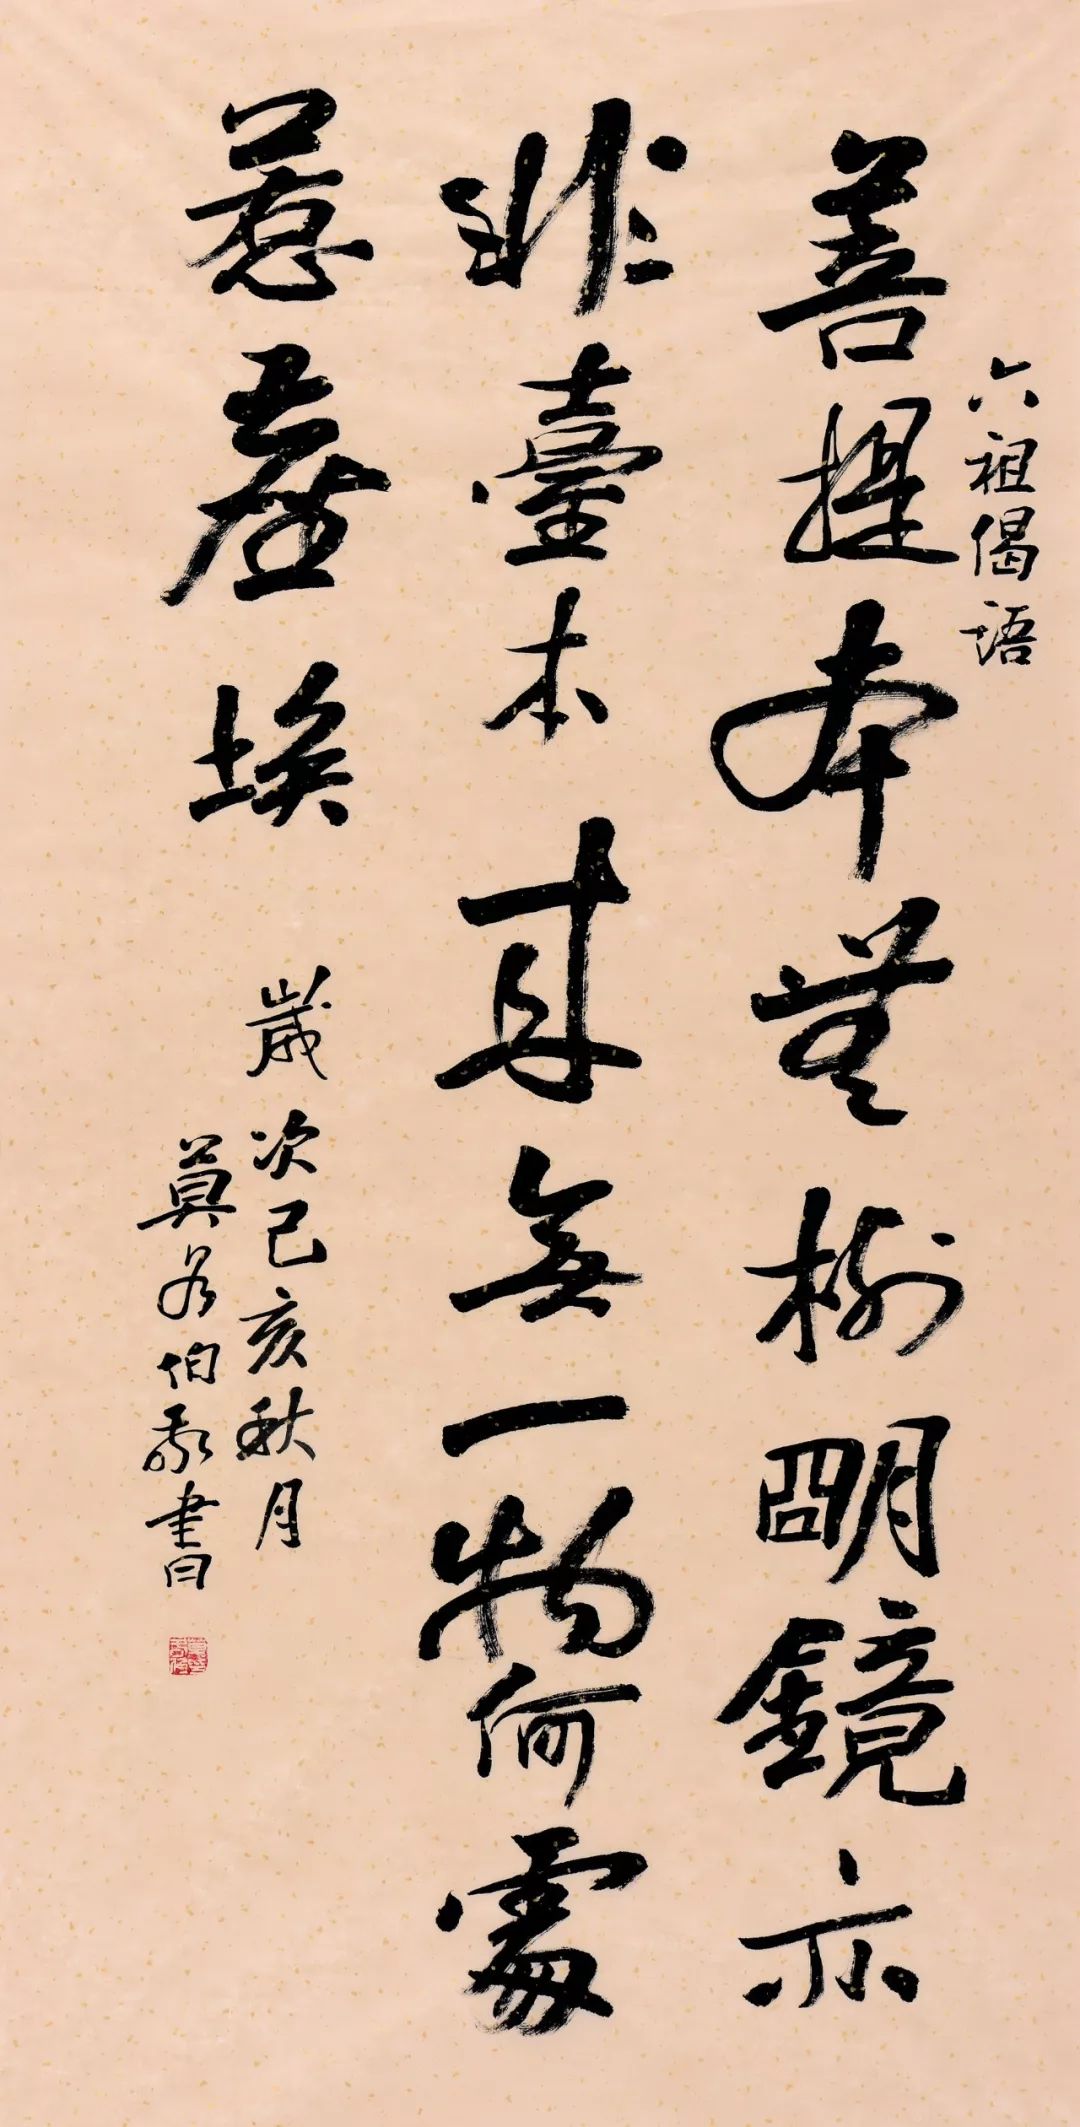 六祖偈语
菩提本無樹明鏡亦
非臺本來無一物何處
惹塵埃
歲次己亥秋月
莫伯書